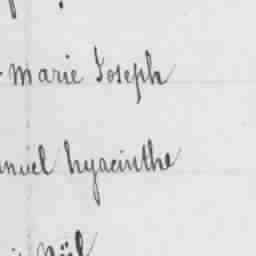 Marie Joseph
anuel hyacinthe
Noël